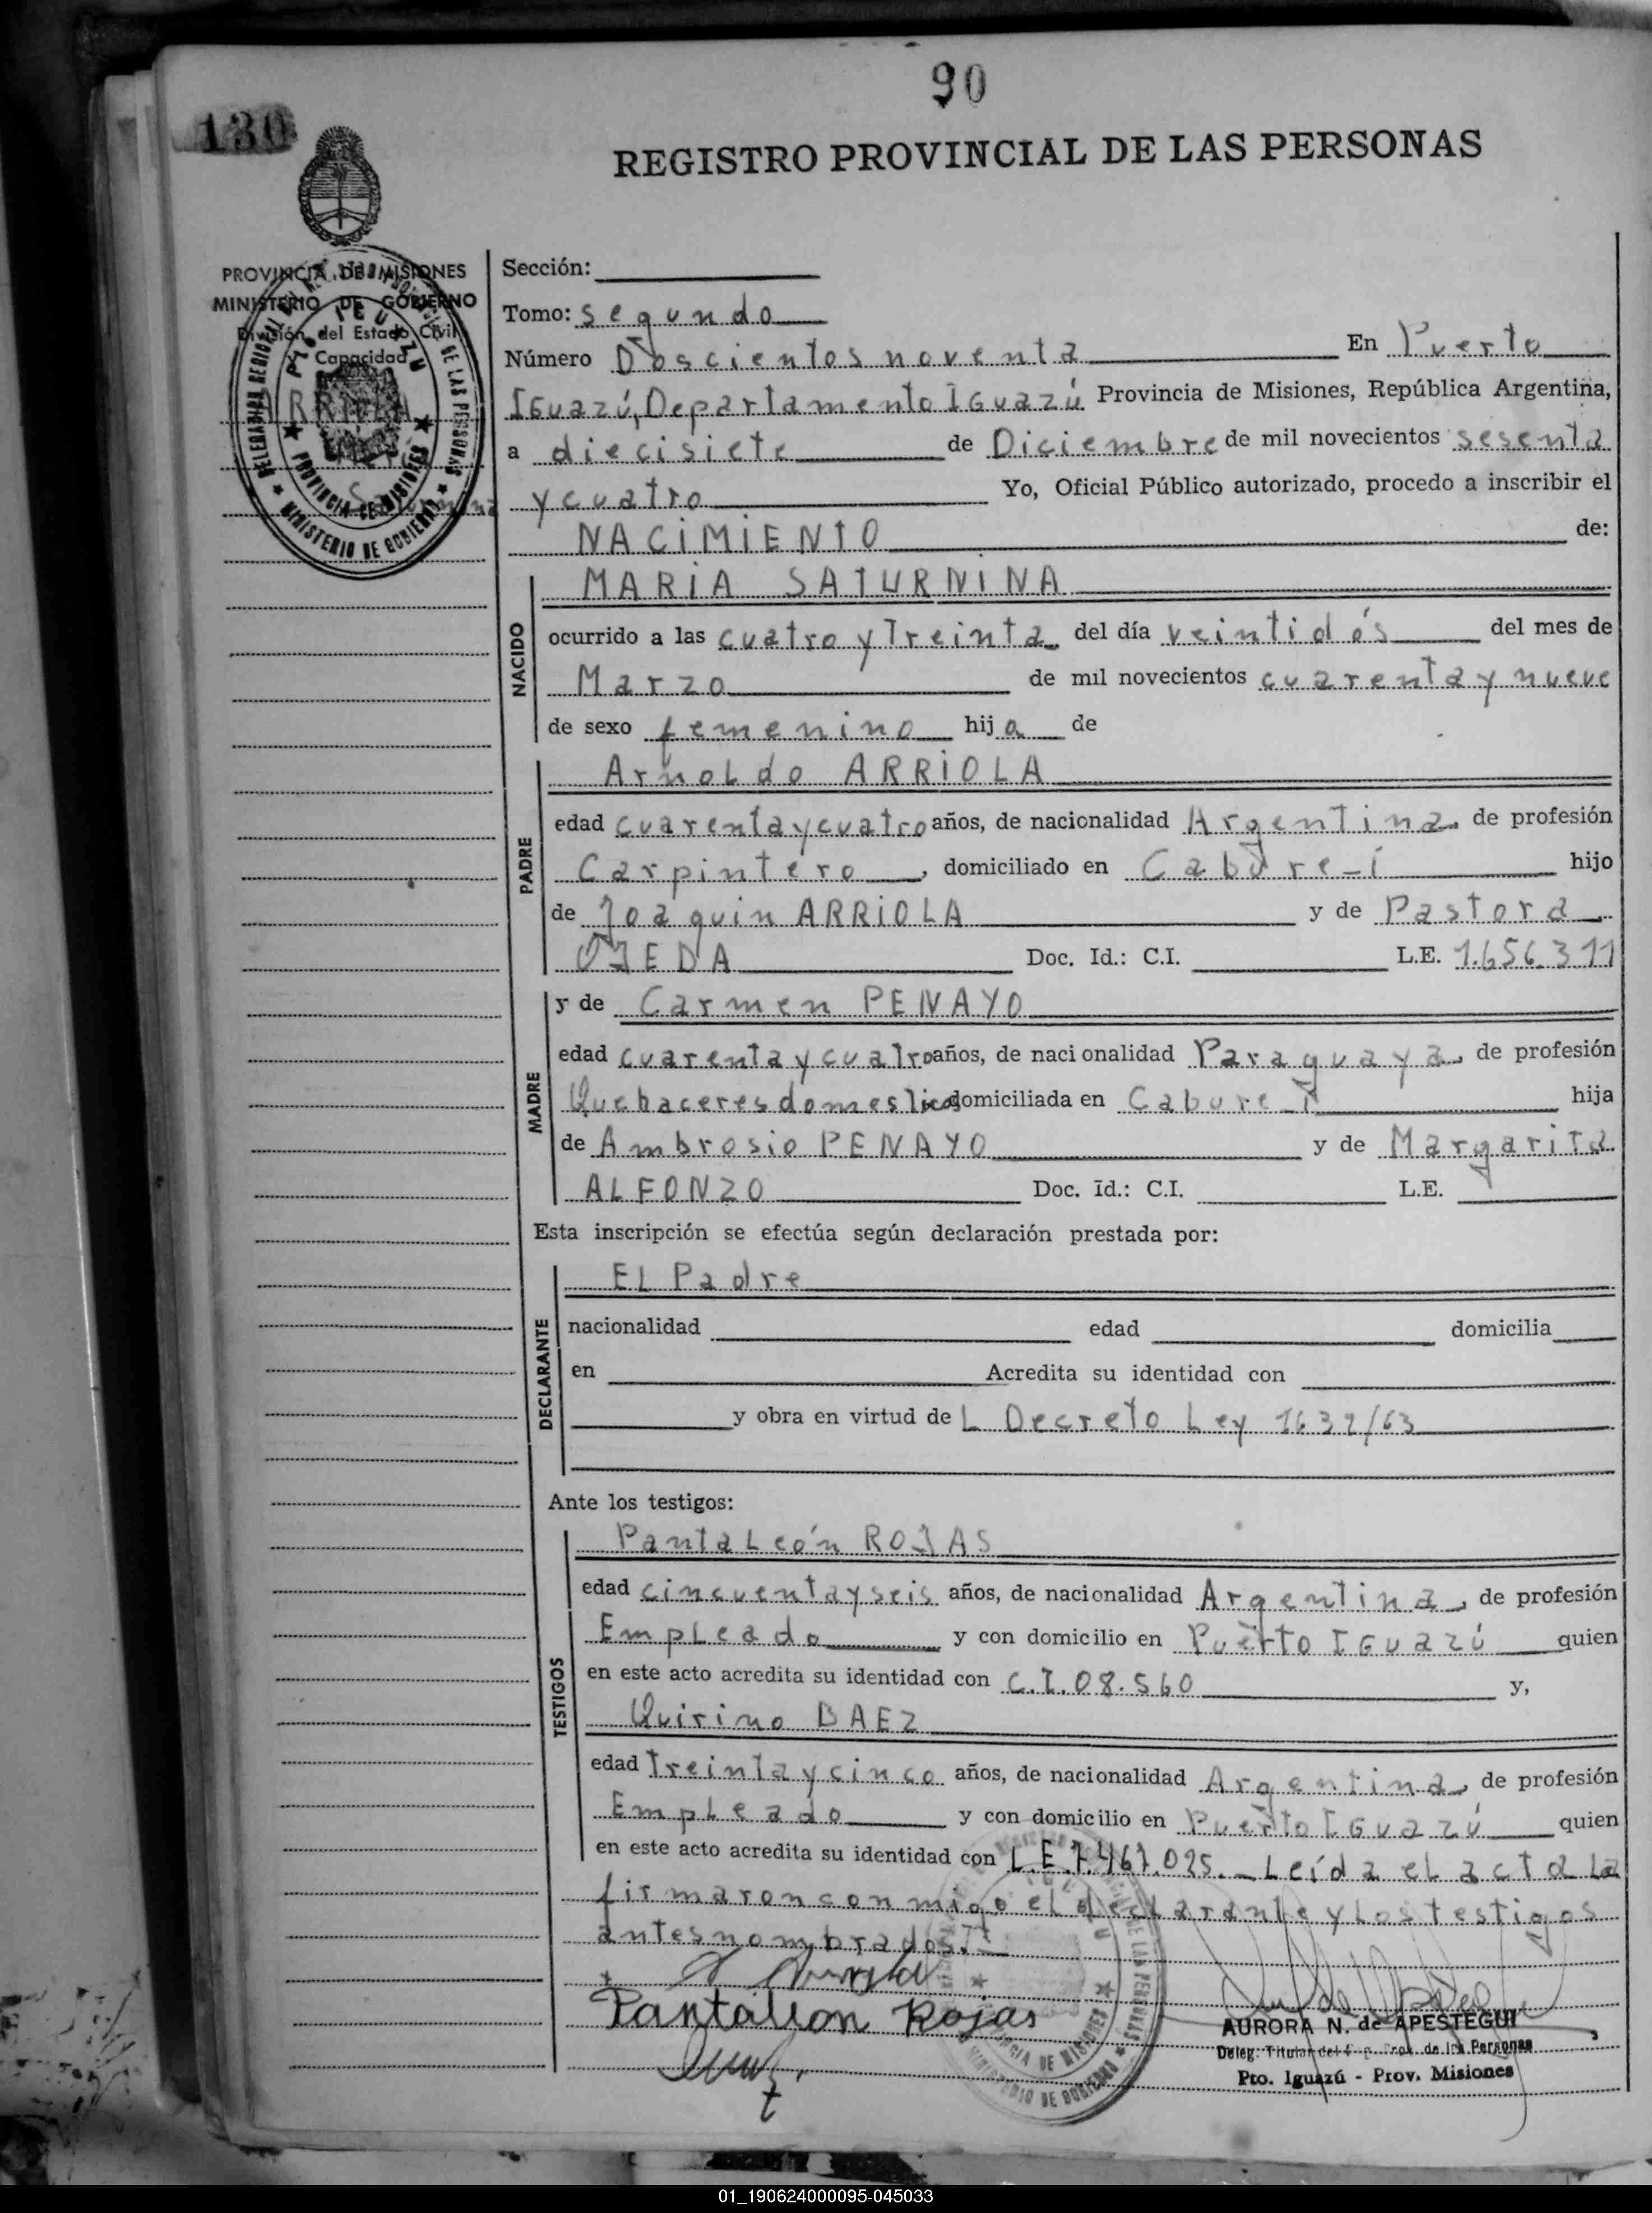 90
130
REGISTRO PROVINCIAL DE LAS PERSONAS
PROVINCIA DE MISIONES
MINISTERIO DE GOBIERNO
División del Estado Civil
y Capacidad
ARRIOLA
María
Saturnina
PTO IGUAZU
PROVINCIA DE MISIONES
MINISTERIO DE GOBIERNO
Sección:
Tomo: segundo
Número Doscientos noventa En Puerto
IGuazú, Departamento IGuazú Provincia de Misiones, República Argentina,
a diecisiete de Diciembre de mil novecientos sesenta
y cuatro Yo, Oficial Público autorizado, procedo a inscribir el
NACiMiENTO de:
NACIDO
MARiA SATURNINA
ocurrido a las cuatro y Treinta del día veintidós del mes de
Marzo de mil novecientos cuarenta y nueve
de sexo femenino hija de
PADRE
ArnoLdo ARRiOLA
edad cuarenta y cuatro años, de nacionalidad Argentina, de profesión
Carpintero, domiciliado en Cabure-í hijo
de Joaquin ARRiOLA y de Pastora
OJEDA Doc. Id.: C.I. L.E. 1.656.311
MADRE
y de Carmen PENAYO
edad cuarenta y cuatro años, de nacionalidad Paraguaya, de profesión
Quehaceres domesticos domiciliada en Cabure-í hija
de Ambrosio PENAYO y de Margarita
ALFONZO Doc. Id.: C.I. L.E.
Esta inscripción se efectúa según declaración prestada por:
DECLARANTE
EL Padre
nacionalidad edad domicilia
en Acredita su identidad con
y obra en virtud de L Decreto Ley 1632/63
Ante los testigos:
TESTIGOS
PantaLeón ROJAS
edad cincuenta y seis años, de nacionalidad Argentina, de profesión
EmpLeado y con domicilio en Puerto IGuazú quien
en este acto acredita su identidad con C.I. 08.560 y,
Quirino BAEZ
edad treinta y cinco años, de nacionalidad Argentina, de profesión
EmpLeado y con domicilio en Puerto IGuazú quien
en este acto acredita su identidad con L.E. 7.467.025. Leída el acta La
firmaron conmigo el declarante y Los testigos
antes nombrados.
Pantalion Rojas
AURORA N. de APESTEGUI
Deleg. Titular del Prov. de las Personas
Pto. Iguazú - Prov. Misiones
01_190624000095-045033